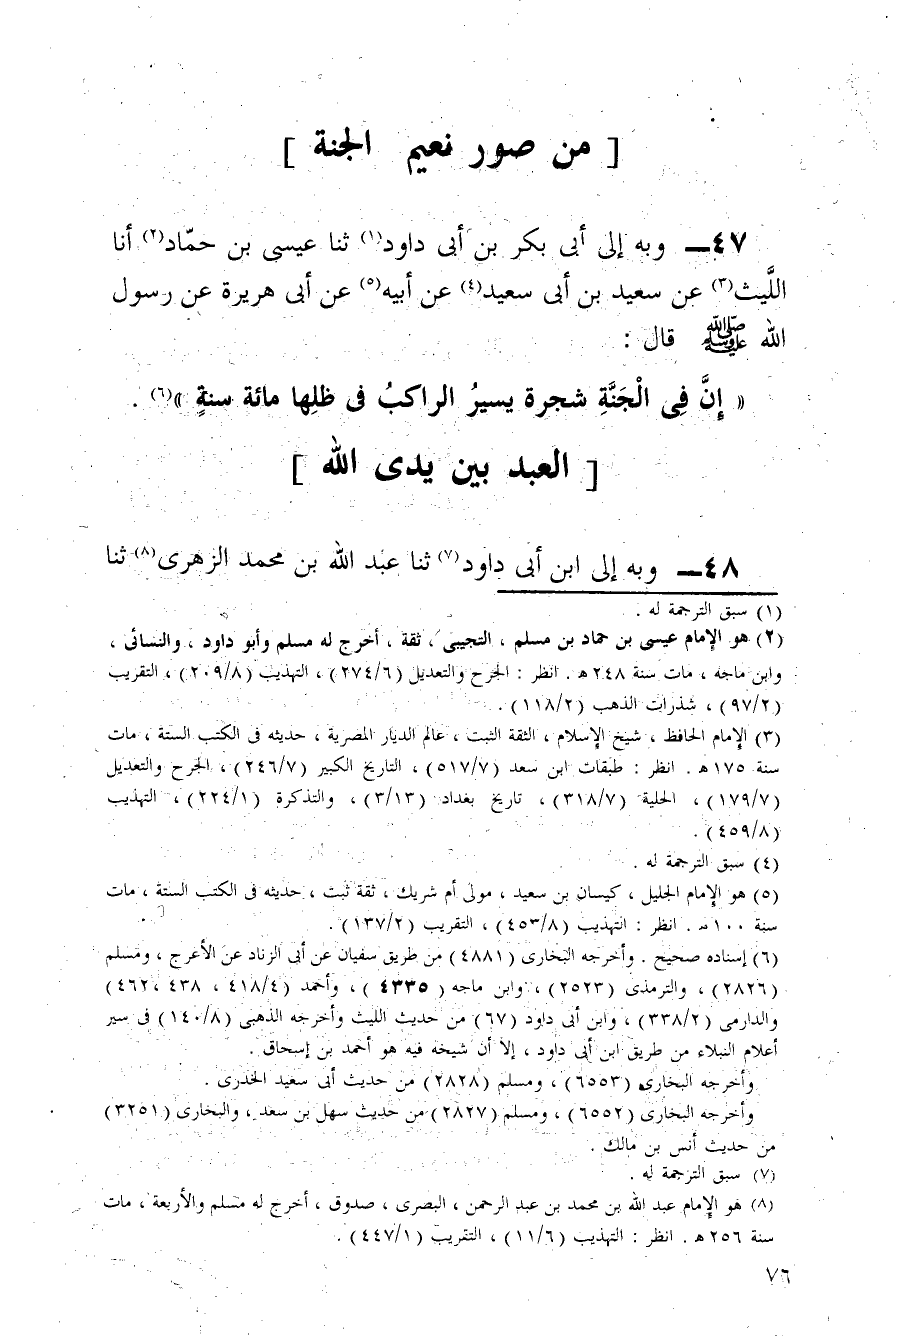 [ من صور نعيم الجنة ]
٤٧ـ وبه إلى أبى بكر بن أبى داود(١) ثنا عيسى بن حمّاد(٢) أنا
اللَّيث(٣) عن سعيد بن أبى سعيد(٤) عن أبيه(٥) عن أبى هريرة عن رسول
الله ﷺ قال :
« إِنَّ فِى الْجَنَّةِ شجرة يسيرُ الراكبُ فى ظلِها مائة سنةٍ »(٦) .
[ العبد بين يدى الله ]
٤٨ـ وبه إلى ابن أبى داود(٧) ثنا عبد الله بن محمد الزهرى(٨) ثنا
(١) سبق الترجمة له .
(٢) هو الإمام عيسى بن حماد بن مسلم ، التجيبى ، ثقة ، أخرج له مسلم وأبو داود ، والنسائى ،
وابن ماجه ، مات سنة ٢٤٨ هـ . انظر : الجرح والتعديل (٢٧٤/٦) ، التهذيب (٢٠٩/٨) ، التقريب
(٩٧/٢) ، شذرات الذهب (١١٨/٢) .
(٣) الإمام الحافظ ، شيخ الإسلام ، الثقة الثبت ، عالم الديار المصرية ، حديثه فى الكتب الستة ، مات
سنة ١٧٥ هـ . انظر : طبقات ابن سعد (٥١٧/٧) ، التاريخ الكبير (٢٤٦/٧) ، الجرح والتعديل
(١٧٩/٧) ، الحلية (٣١٨/٧) ، تاريخ بغداد (٣/١٣) ، والتذكرة (٢٢٤/١) ، التهذيب
(٤٥٩/٨) .
(٤) سبق الترجمة له .
(٥) هو الإمام الجليل ، كيسان بن سعيد ، مولى أم شريك ، ثقة ثبت ، حديثه فى الكتب الستة ، مات
سنة ١٠٠ هـ . انظر : التهذيب (٤٥٣/٨) ، التقريب (١٣٧/٢) .
(٦) إسناده صحيح . وأخرجه البخارى (٤٨٨١) من طريق سفيان عن أبى الزناد عن الأعرج ، ومسلم
(٢٨٢٦) ، والترمذى (٢٥٢٣) ، وابن ماجه ( ٤٣٣٥ ) ، وأحمد (٤١٨/٤ ، ٤٣٨ ، ٤٦٢)
والدارمى (٣٣٨/٢) ، وابن أبى داود (٦٧) من حديث الليث وأخرجه الذهبى (١٤٠/٨) فى سير
أعلام النبلاء من طريق ابن أبى داود ، إلا أن شيخه فيه هو أحمد بن إسحاق .
وأخرجه البخارى (٦٥٥٣) ، ومسلم (٢٨٢٨) من حديث أبى سعيد الخدرى .
وأخرجه البخارى (٦٥٥٢) ، ومسلم (٢٨٢٧) من حديث سهل بن سعد ، والبخارى (٣٢٥١)
من حديث أنس بن مالك .
(٧) سبق الترجمة له .
(٨) هو الإمام عبد الله بن محمد بن عبد الرحمن ، البصرى ، صدوق ، أخرج له مسلم والأربعة ، مات
سنة ٢٥٦ هـ . انظر : التهذيب (١١/٦) ، التقريب (٤٤٧/١) .
٧٦